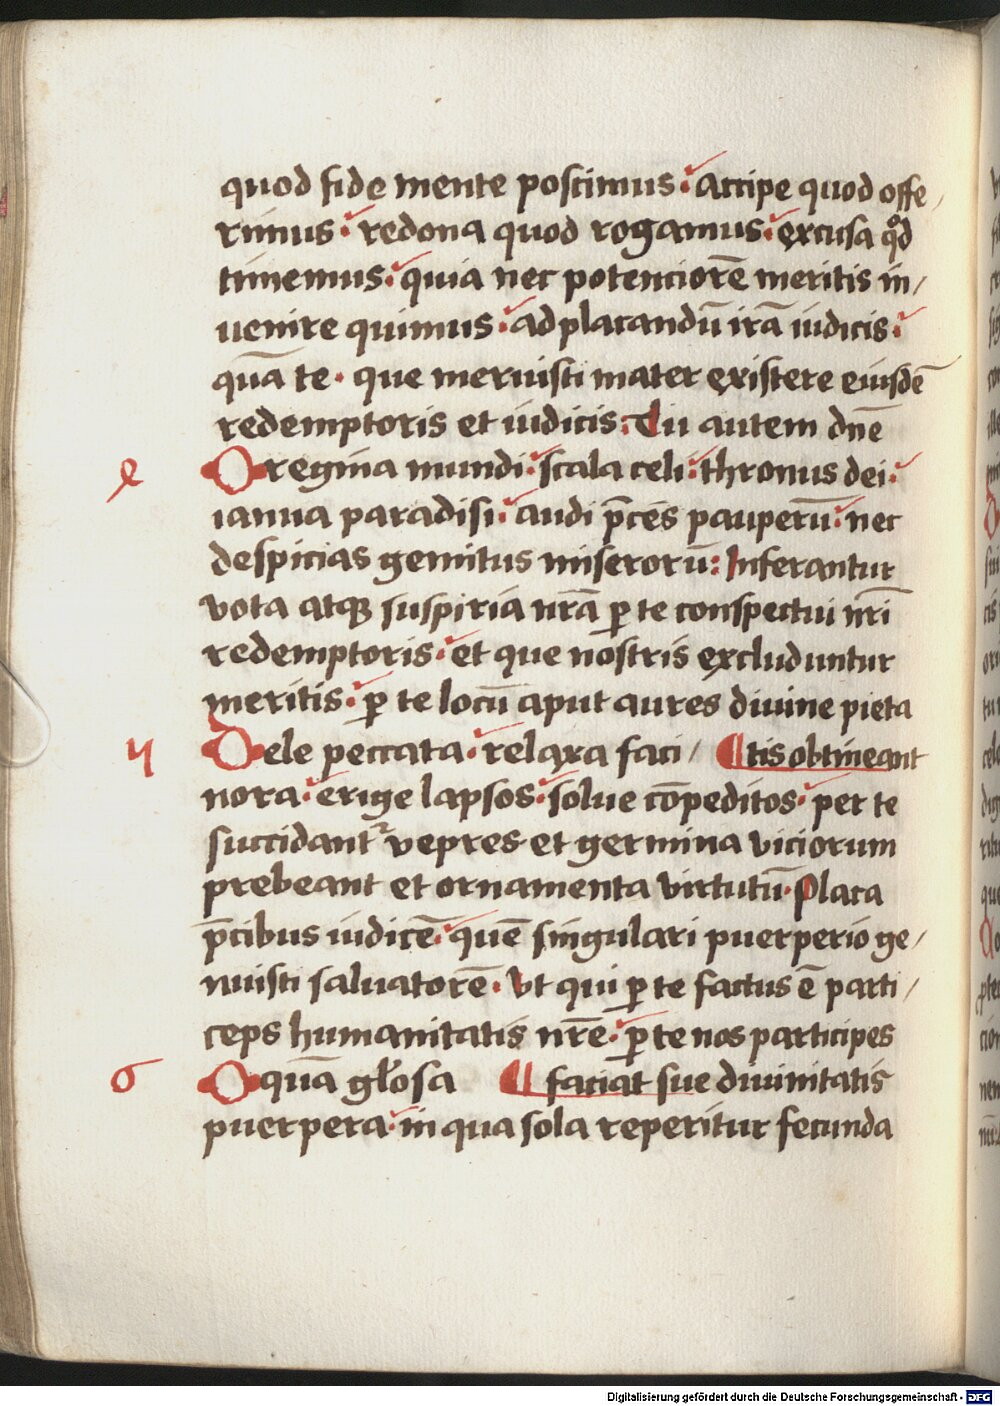 quod fide mente poscimus. accipe quod offe
rimus. redona quod rogamus. excusa qđ
timemus. quia nec potenciorē meritis in/
uenire quimus. ad placandū irā iudicis.
quā te. que meruisti mater existere eiusdē
redemptoris et iudicis. Tu autem dnē
O regina mundi. scala celi. thronus dei.
ianua paradisi. audi p̄ces pauperū. nec
despicias gemitus miserorū: Inferantur
vota atq̢ suspiria nr̄a ꝑ te conspectui nr̄i
redemptoris. et que nostris excluduntur
meritis. ꝑ te locū aput aures diuine pieta
Dele peccata. relaxa faci/ ¶ tis obtineant
nora. erige lapsos. solue cōpeditos. per te
succidant᷑ vepres et germina viciorum
prebeant et ornamenta virtutū. Placa
p̄cibus iudicē. quē singulari puerperio ge/
nuisti saluatorē. Vt qui ꝑ te factus ē parti/
ceps humanitatis nr̄e. ꝑ te nos participes
O quā gl̄osa ¶ faciat sue diuinitatis
puerpera. in qua sola reperitur fecunda
Digitalisierung gefördert durch die Deutsche Forschungsgemeinschaft - DFG